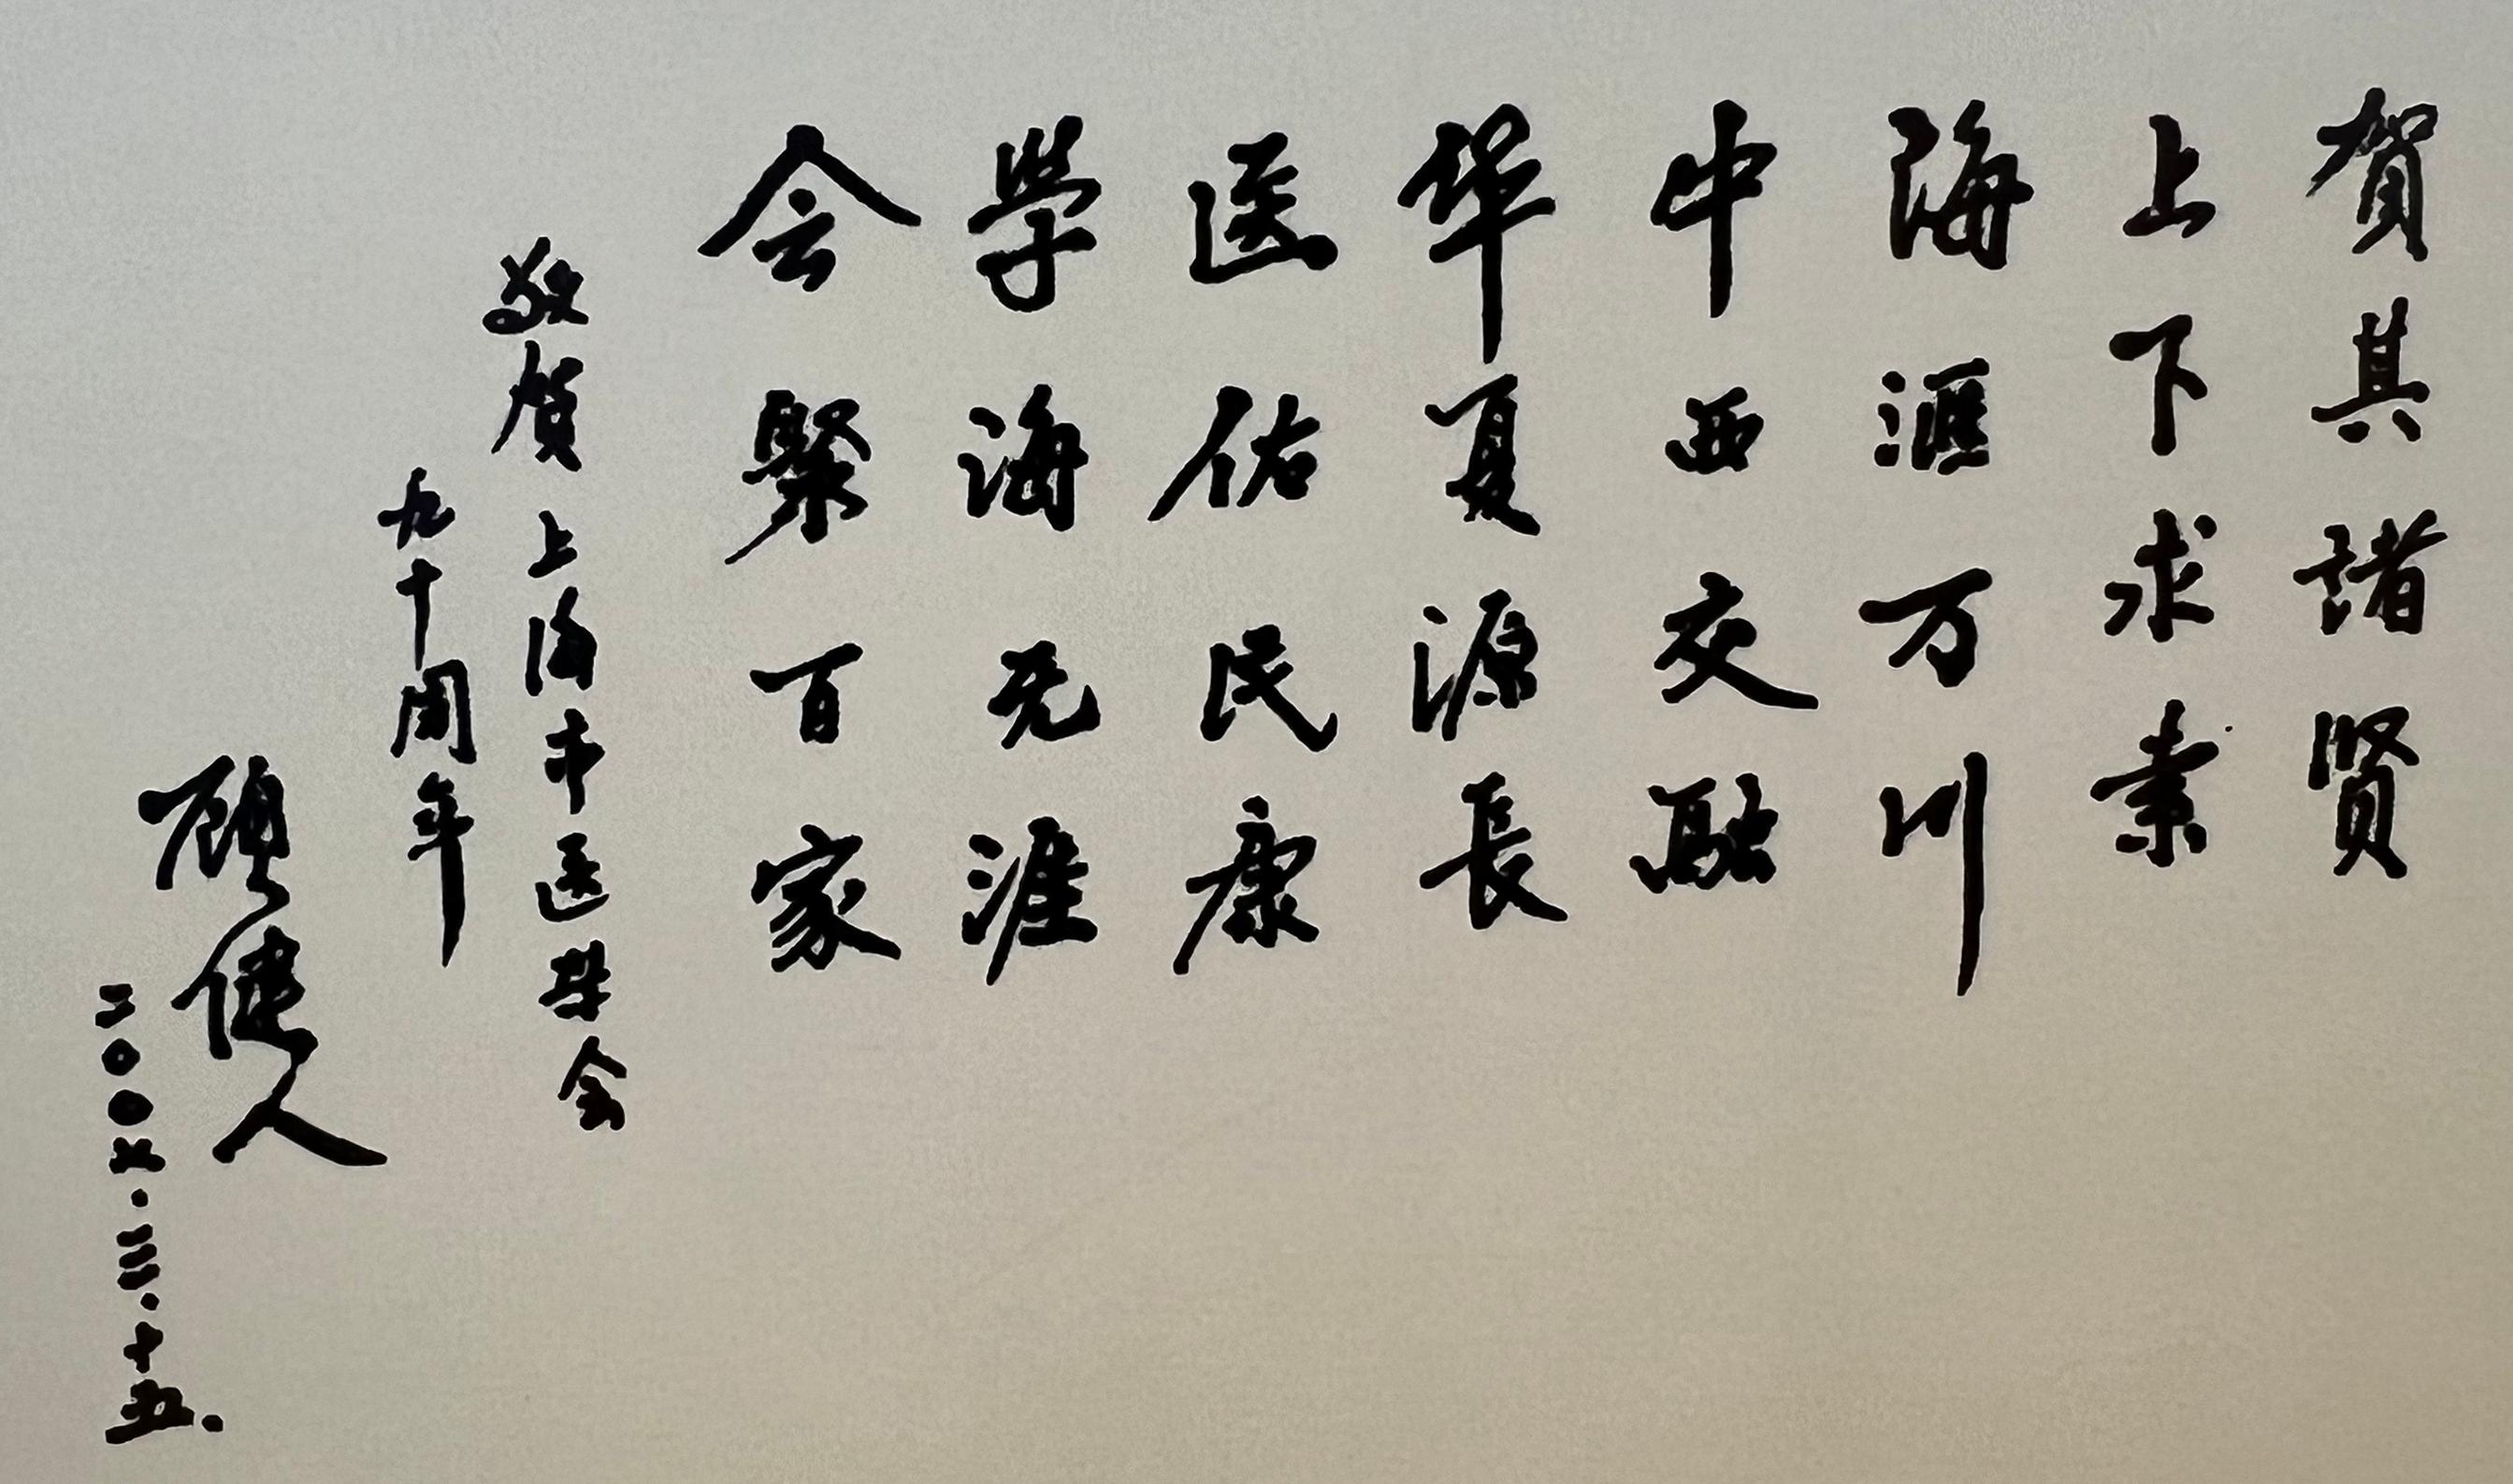 賀其諸賢
上下求索
海滙万川
中西交融
华夏源長
医佑民康
學海无涯
会聚百家
敬賀上海市医学会
九十周年
顾健人
二〇〇七.三.十五.